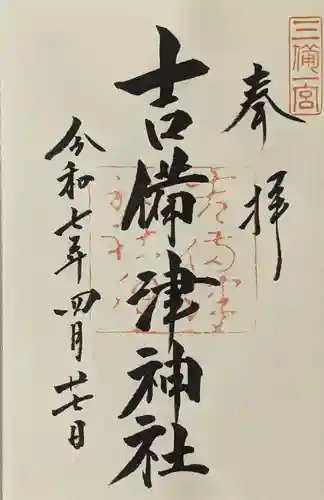 三備一宮
奉拝
吉備津神社
令和七年四月廿七日